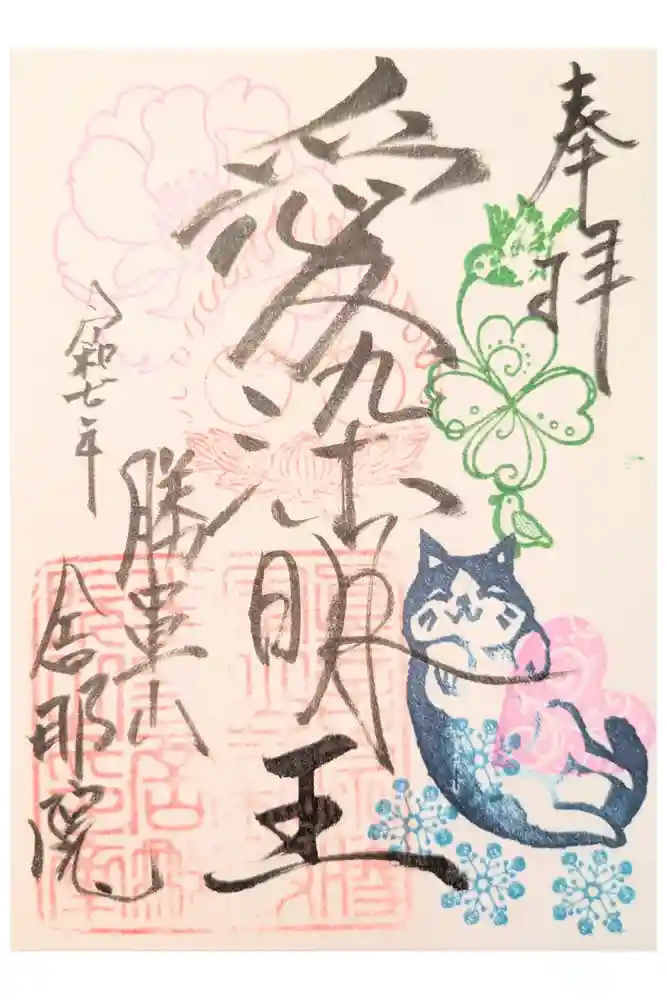 奉拝
愛染明王
勝軍山
舎那院
令和七年